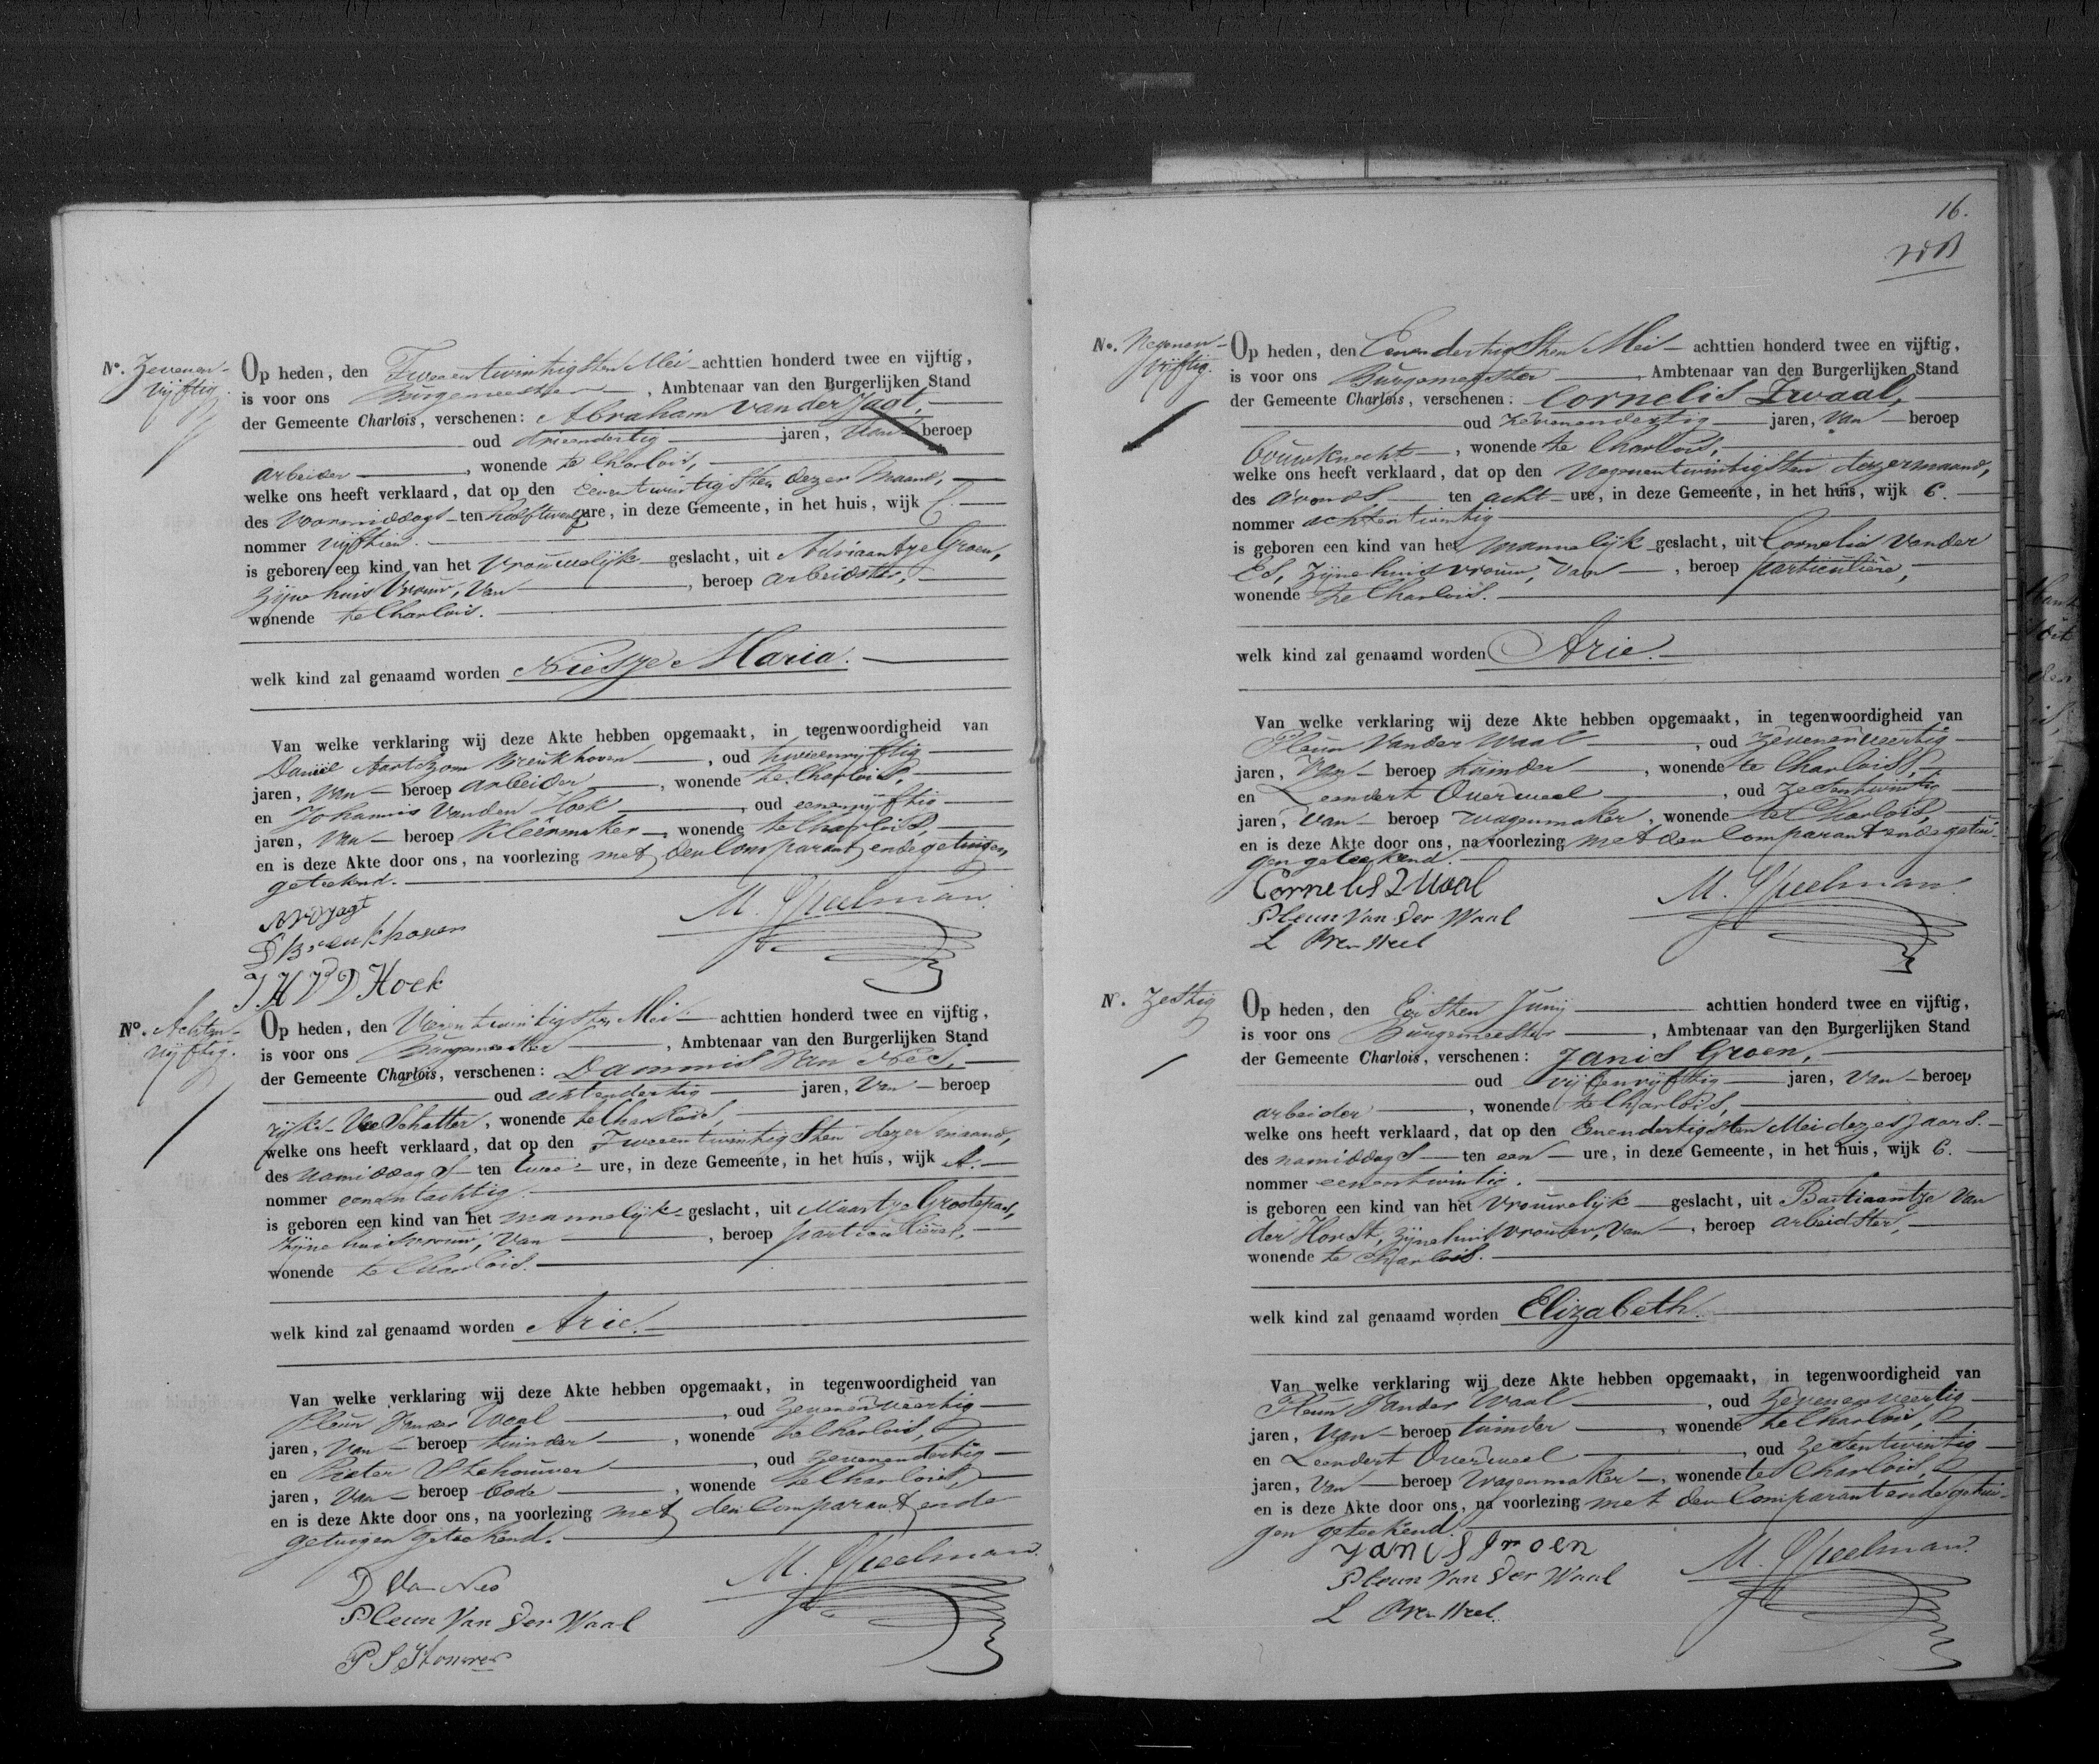 No. Zevenen-
vijftig
Op heden, den Tweeentwintigsten Mei achttien honderd twee en vijftig,
is voor ons Burgemeester, Ambtenaar van den Burgerlijken Stand
der Gemeente Charlois, verschenen: Abraham van der Jagt,
oud drieendertig jaren, van beroep
arbeider, wonende te Charlois,
welke ons heeft verklaard, dat op den eenentwintigsten dezer maand,
des voormiddags ten half twaalf ure, in deze Gemeente, in het huis, wijk C.
nommer vijftien.
is geboren een kind van het vrouwelijk geslacht, uit Adriaantze Groen,
zijne huisvrouw, van, beroep arbeidster,
wonende te Charlois.
welk kind zal genaamd worden Niesje Maria.
Van welke verklaring wij deze Akte hebben opgemaakt, in tegenwoordigheid van
Daniel Aartszoon Breukhoven, oud tweeenvijftig
jaren, van beroep arbeider, wonende te Charlois,
en Johannis van den Hoek, oud eenenvijftig
jaren, van beroep kleêrmaker, wonende te Charlois,
en is deze Akte door ons, na voorlezing met den Comparant en de getuigen
geteekend.
AvdJagt
D Breukhoven
J.H V D Hoek
M. Speelman.
No. Achten-
vijftig.
Op heden, den Vierentwintigsten Mei achttien honderd twee en vijftig,
is voor ons Burgemeester, Ambtenaar van den Burgerlijken Stand
der Gemeente Charlois, verschenen: Dammis van Nes,
oud achtendertig jaren, van beroep
rijks-Veeschatter, wonende te Charlois,
welke ons heeft verklaard, dat op den Tweeentwintigsten dezer maand,
des namiddags ten twee ure, in deze Gemeente, in het huis, wijk A.
nommer eenentachtig.
is geboren een kind van het mannelijk geslacht, uit Maartze Grootepad,
zijne huisvrouw, van, beroep particuliere,
wonende te Charlois.
welk kind zal genaamd worden Arie.
Van welke verklaring wij deze Akte hebben opgemaakt, in tegenwoordigheid van
Pleun van der Waal, oud zevenenveertig
jaren, van beroep tuinder, wonende te Charlois,
en Pieter Stehouwer, oud zevenendertig
jaren, van beroep bode, wonende te Charlois,
en is deze Akte door ons, na voorlezing met den Comparant en de
getuigen geteekend.
D van Nes
Pleun Van Der Waal
P Stehouwer
M. Speelman.
16.
No. Negenen-
vijftig.
Op heden, den Eenendertigsten Mei achttien honderd twee en vijftig,
is voor ons Burgemeester Ambtenaar van den Burgerlijken Stand
der Gemeente Charlois, verschenen: Cornelis Zwaal,
oud zevenendertig jaren, van beroep
bouwknecht, wonende te Charlois,
welke ons heeft verklaard, dat op den negenentwintigsten dezer maand,
des avonds ten acht ure, in deze Gemeente, in het huis, wijk C.
nommer achtentwintig
is geboren een kind van het mannelijk geslacht, uit Cornelia van der
Es, zijne huisvrouw, van, beroep particulière,
wonende te Charlois.
welk kind zal genaamd worden Arie.
Van welke verklaring wij deze Akte hebben opgemaakt, in tegenwoordigheid van
Pleun van der Waal, oud zevenenveertig
jaren, van beroep tuinder, wonende te Charlois,
en Leendert Overweel, oud zesentwintig
jaren, van beroep wagenmaker, wonende te Charlois,
en is deze Akte door ons, na voorlezing met den Comparant en de getui-
gen geteekend.
Cornelis Zwaal
Pleun Van Der Waal
L Overweel
M. Speelman.
N. Zestig
Op heden, den Eersten Junij achttien honderd twee en vijftig,
is voor ons Burgemeester, Ambtenaar van den Burgerlijken Stand
der Gemeente Charlois, verschenen: Janis Groen,
oud vijfenvijftig jaren, van beroep
arbeider, wonende te Charlois,
welke ons heeft verklaard, dat op den Eenendertigsten Mei dezes jaars.
des namiddags ten een ure, in deze Gemeente, in het huis, wijk C.
nommer eenentwintig.
is geboren een kind van het vrouwelijk geslacht, uit Bastiaantze van
der Horst, zijne huisvrouw, van, beroep arbeidster,
wonende te Charlois.
welk kind zal genaamd worden Elizabeth.
Van welke verklaring wij deze Akte hebben opgemaakt, in tegenwoordigheid van
Pleun van der Waal, oud zevenenveertig
jaren, van beroep tuinder, wonende te Charlois,
en Leendert Overweel, oud zesentwintig
jaren, van beroep wagenmaker, wonende te Charlois,
en is deze Akte door ons, na voorlezing met den Comparant en de getui-
gen geteekend.
Janis Groen
Pleun Van Der Waal
L Overweel
M. Speelman.